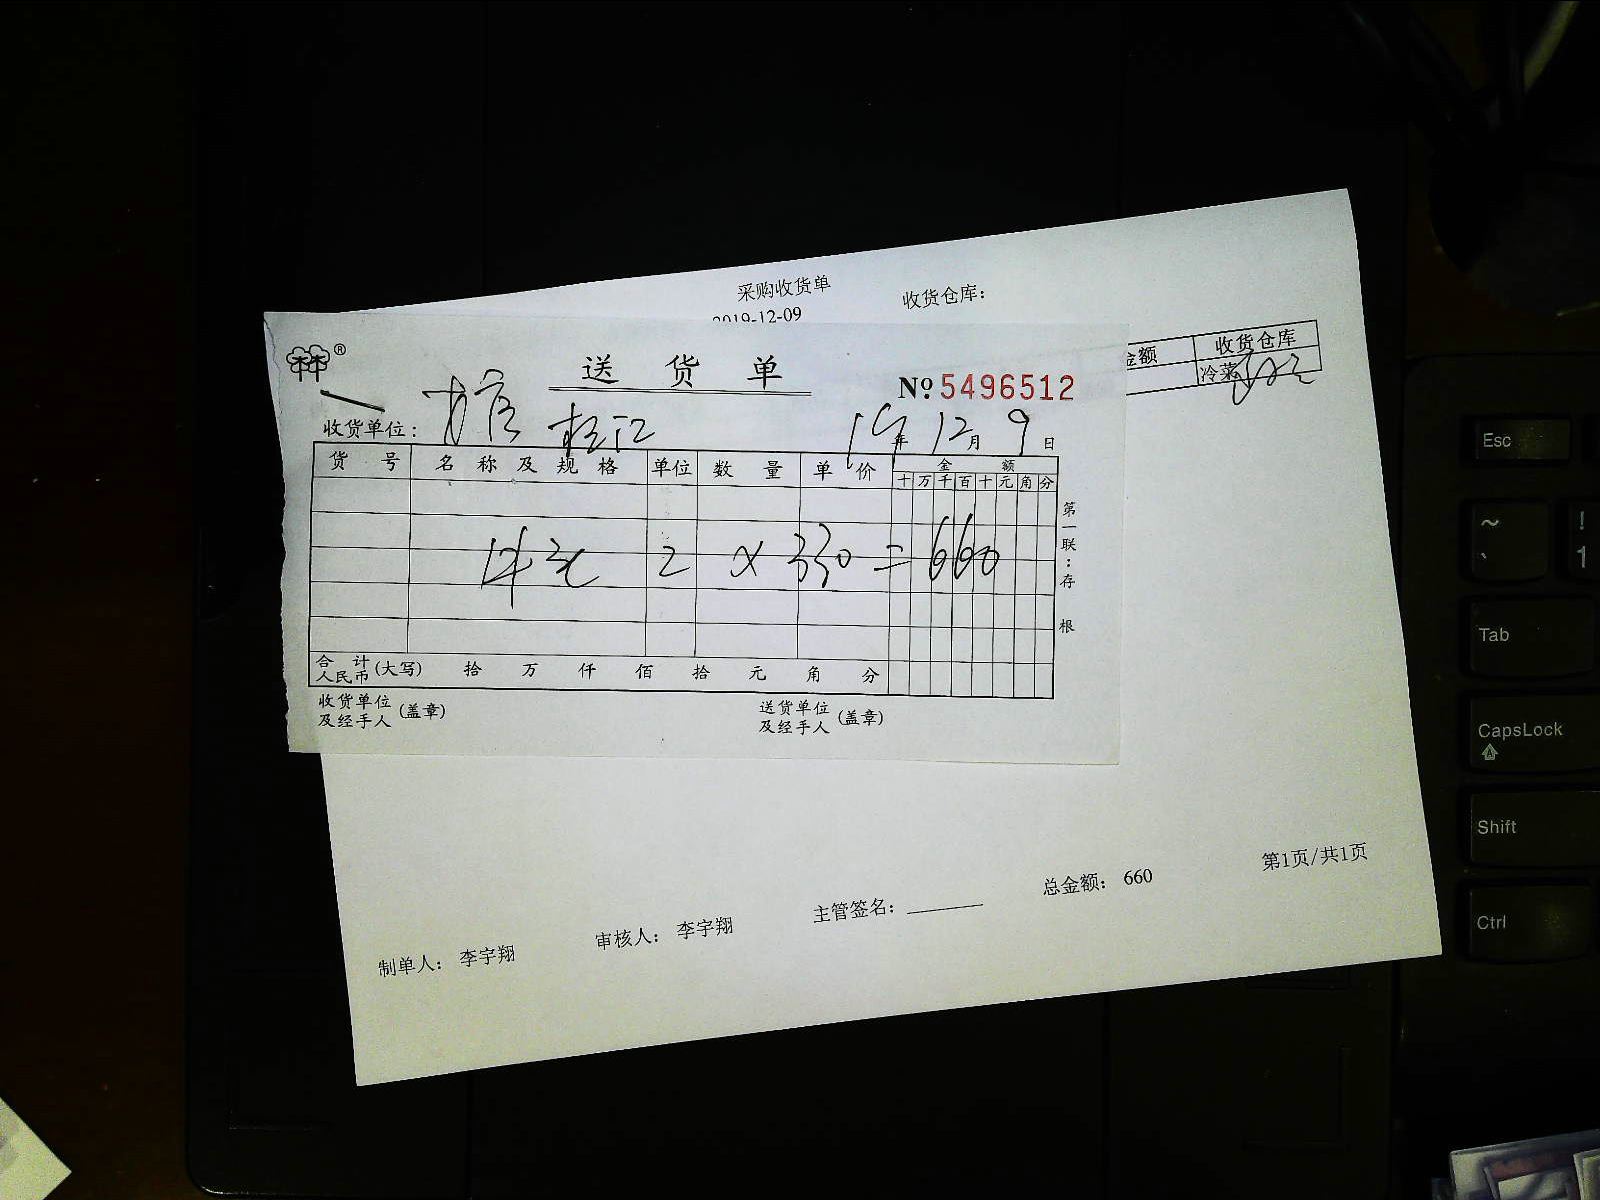 采购收货单
收货仓库：
2019-12-09
金额 收货仓库
冷菜
®
送货单
№ 5496512
收货单位： 松江 19年 12月 9日
货号 名称及规格 单位 数量 单价 金额
十 万 千 百 十 元 角 分
2 × 330 = 660
第一联：存根
合计人民币(大写) 拾 万 仟 佰 拾 元 角 分
收货单位及经手人(盖章) 送货单位及经手人(盖章)
制单人： 李宇翔 审核人： 李宇翔 主管签名： 总金额： 660 第1页/共1页
Esc
~
`
!
1
Tab
CapsLock
Shift
Ctrl